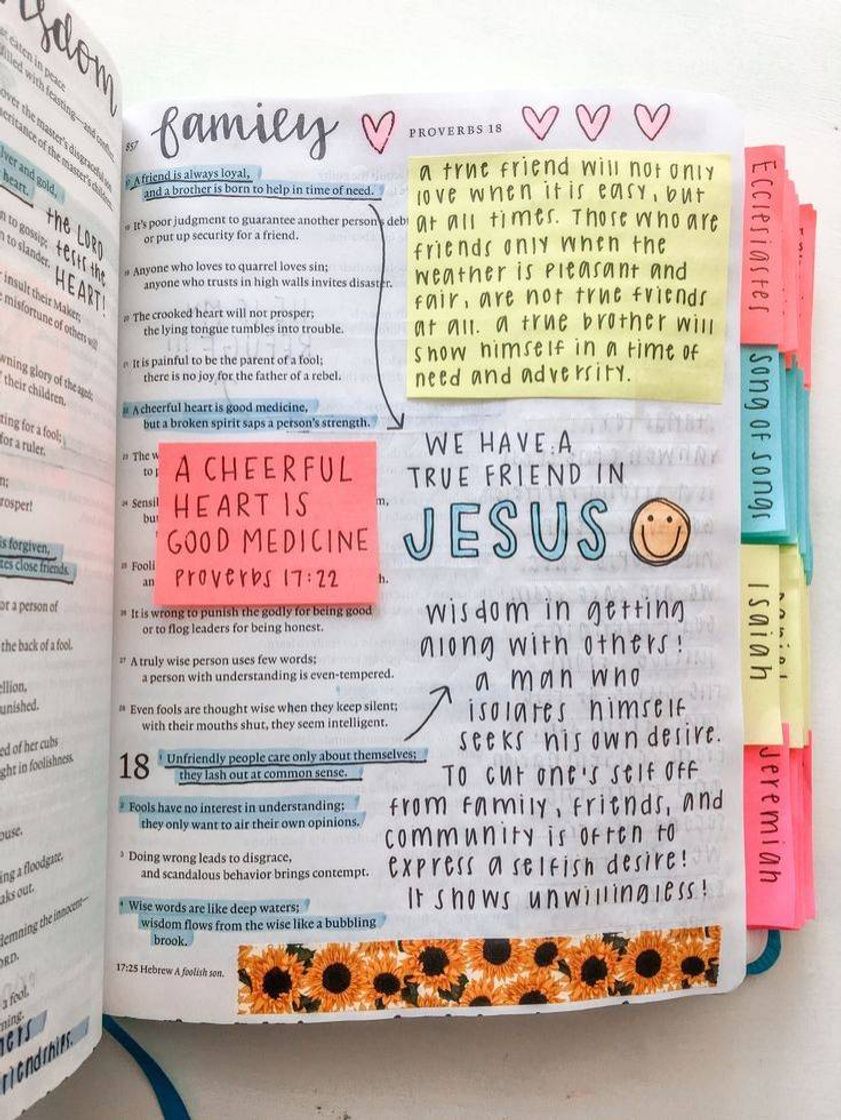 isdom
eaten in peace
filled with feasting—and conflict.
over the master's disgraceful son
inheritance of the master's children.
silver and gold,
heart.
the LORD
tests the
HEART!
to gossip;
to slander.
insult their Maker;
misfortune of others will
crowning glory of the aged;
their children.
fitting for a fool;
for a ruler.
prosper!
is forgiven,
close friends.
of a person of
the back of a fool.
unished.
ed of her cubs
ght in foolishness.
ouse.
ing a floodgate,
aks out.
demning the innocent—
ORD.
a fool,
ning.
riendships.
857
family
PROVERBS 18
17 A friend is always loyal,
and a brother is born to help in time of need.
18 It's poor judgment to guarantee another person's deb
or put up security for a friend.
19 Anyone who loves to quarrel loves sin;
anyone who trusts in high walls invites disaster.
20 The crooked heart will not prosper;
the lying tongue tumbles into trouble.
21 It is painful to be the parent of a fool;
there is no joy for the father of a rebel.
22 A cheerful heart is good medicine,
but a broken spirit saps a person's strength.
23 The w
to p
24 Sensi
bu
25 Fooli
an
A CHEERFUL
HEART IS
GOOD MEDICINE
Proverbs 17:22
26 It is wrong to punish the godly for being good
or to flog leaders for being honest.
27 A truly wise person uses few words;
a person with understanding is even-tempered.
28 Even fools are thought wise when they keep silent;
with their mouths shut, they seem intelligent.
18 1 Unfriendly people care only about themselves;
they lash out at common sense.
2 Fools have no interest in understanding;
they only want to air their own opinions.
3 Doing wrong leads to disgrace,
and scandalous behavior brings contempt.
4 Wise words are like deep waters;
wisdom flows from the wise like a bubbling
brook.
17:25 Hebrew A foolish son.
a true friend will not only
love when it is easy, but
at all times. Those who are
friends only when the
weather is pleasant and
fair, are not true friends
at all. a true brother will
show himself in a time of
need and adversity.
WE HAVE A
TRUE FRIEND IN
JESUS
wisdom in getting
along with others!
a man who
isolates himself
seeks his own desire.
To cut one's self off
from family, friends, and
community is often to
express a selfish desire!
It shows unwillingless!
Ecclesiastes
song of songs
Isaiah
Jeremiah